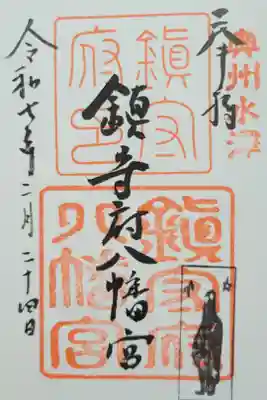 奥州水沢
奉拝
鎮守府八幡宮
令和七年二月二十四日
鎮守府印
鎮守府八幡宮